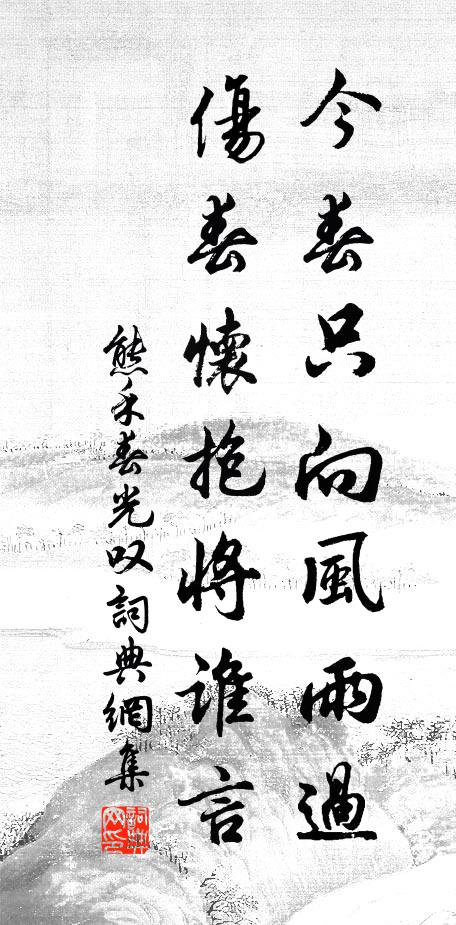 今春只向風雨過
傷春懷抱將誰言
熊禾春光叹詞典網集